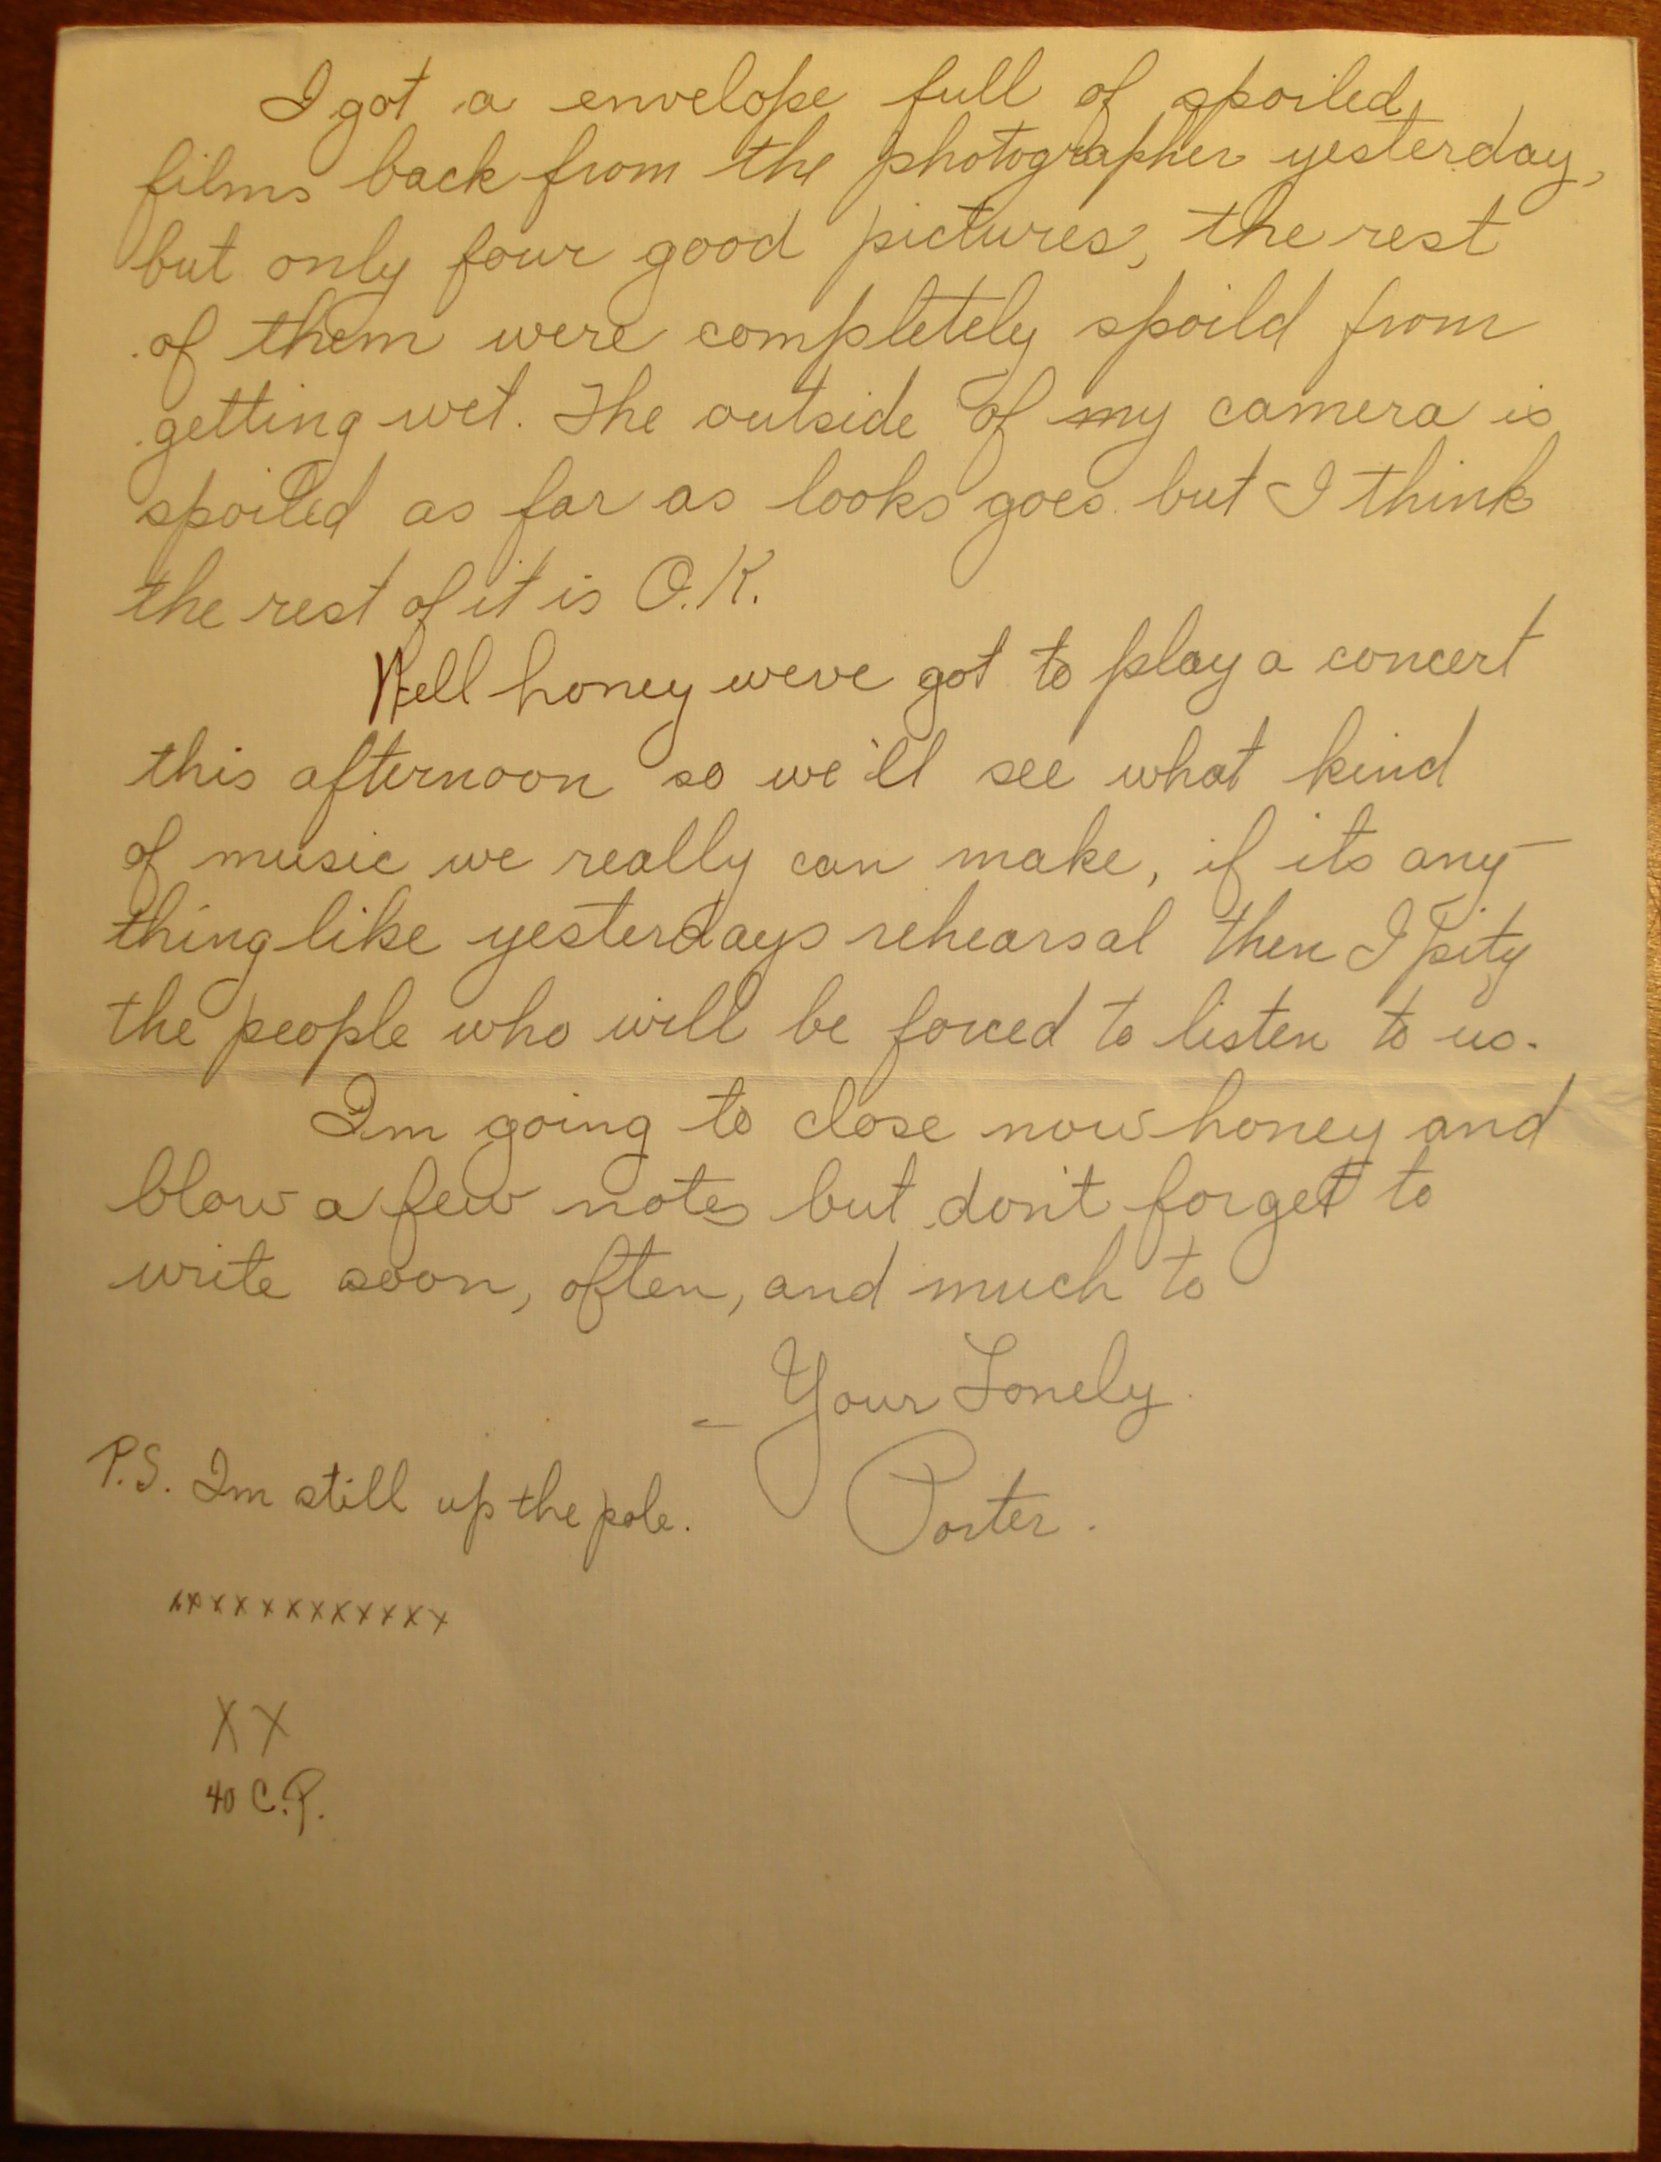 I got a envelope full of spoiled
films back from the photographer yesterday,
but only four good pictures, the rest
of them were completely spoild from
getting wet. The outside of my camera is
spoiled as far as looks goes but I think
the rest of it is O.K.
Well honey weve got to play a concert
this afternoon so we'll see what kind
of music we really can make, if its any-
thing like yesterdays rehearsal then I pity
the people who will be forced to listen to us.
Im going to close now honey and
blow a few notes but don't forget to
write soon, often, and much to
- Your Lonely
Porter.
P.S. Im still up the pole.
xxxxxxxxxxxx
XX
40 C.P.